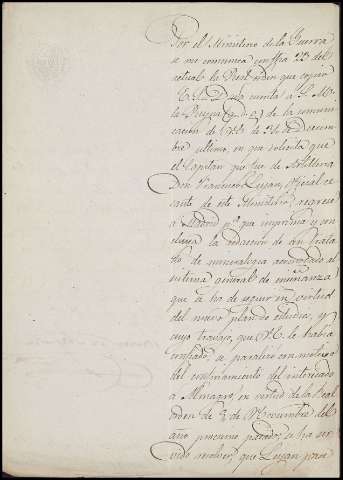 Por el Ministerio de la Guerra
se me comunica con fha 22 del
actual la Real orden que copio:
E. S. Dada cuenta a S. M.
la Reyna (q. D. g.) de la comuni
cacion de V. E. de 31 de Diciem
bre ultimo, en que solicita que
el Capitan que fue de Artilleria
Don Francisco Lujan, oficial ce
sante de este Ministerio, regrese
a Madrid pa. que imprima y con
cluya la redaccion de un trata
do de mineralogia acomodado al
sistema general de enseñanza
que se ha de seguir en virtud
del nuevo plan de estudios, y
cuyo trabajo, que V. E. le habia
confiado, se paralizo con motivo
del confinamiento del interesado
a Almagro, en virtud de la Real
orden de 2 de Noviembre del
año proximo pasado; se ha ser
vido resolver, que Lujan pase